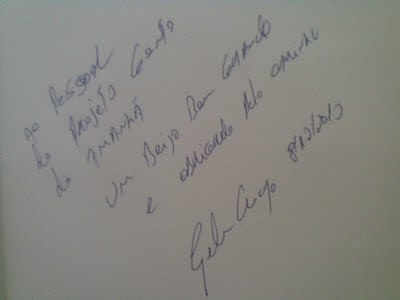 Ao Pessoal
do Projeto Canto
da Amanhã
um Beijo Bem Grande
e obrigado pelo carinho
8/12/2010